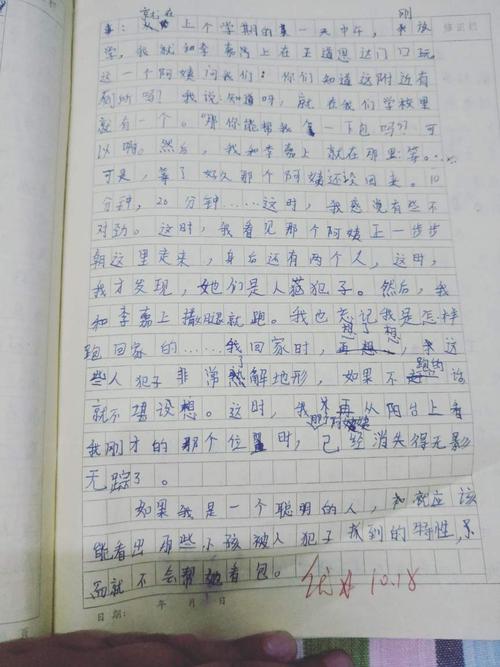 就在 刚
事：上个学期的某一天中午，我放
学，我就和李嘉上在王道思达门口玩
这一个阿姨问我们：你们知道这附近有
厕所吗？我说：知道呀，就在我们学校里
就有一个。"那你能帮我拿一下包吗？可
以啊。然后，我和李嘉上就在那里等。
可是，等了好久那个阿姨还没回来。10
分钟，20分钟……这时，我感觉有些不
对劲。这时，我看见那个阿姨正一步步
朝这里走来，身后还有两个人，这时，
我才发现，她们是人贩犯子。然后，我
和李嘉上撒腿就跑。我也忘记我是怎样
想了想
跑回家的……我回家时，，这
跑的
些人犯子非常了解地形，如果不话
就不堪设想。这时，我再从阳台上看
那个阿姨
我刚才的那个位置时，已经消失得无影
无踪了。
如果我是一个聪明的人，就应该
能看出那些小孩被人犯子找到的特性，
就不会帮她看包。
优 10.18
日期： 年 月 日
页